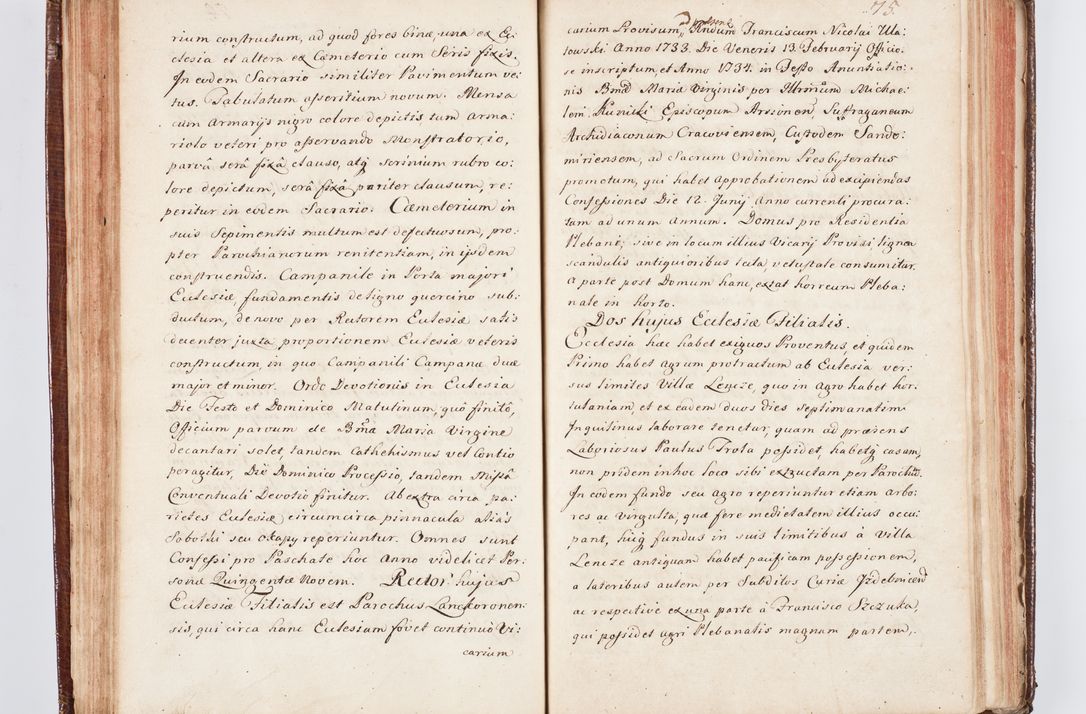 rium constructum, ad quod fores binæ, una ex Ec:
clesia et altera ex Cæmeterio cum Seris fixis.
In eodem Sacrario similiter Pavimentum ve:
tus. Tabulatum asseritium novum. Mensa
cum Armarijs nigro colore depictis tum Arma:
riolo veteri pro asservando Monstratorio,
parvâ serâ fixâ clauso, atq scrinium rubro co:
lore depictum, serâ fixâ pariter clausum, re:
peritur in eodem Sacrario. Cæmeterium in
suis Sepimentis multum est defectuosum, pro:
pter Parochianorum renitentiam, in ijsdem
construendis. Campanile in Porta majori
Ecclesiæ, fundamentis de ligno quercino sub:
ductum, de novo per Rectorem Ecclesiæ satis
decenter juxta proportionem Ecclesiæ veteris
constructum, in quo Campanili Campanæ duæ
major et minor. Ordo Devotionis in Ecclesia
Die Festo et Dominico Matutinum, quô finitô,
Officium parvum de Bma Maria Virgine
decantari solet, tandem Cathehismus vel Contio
peragitur, Die Dominico Processio, tandem Missâ
Conventuali Devotio finitur. Ab extra circa pa:
rietes Ecclesiæ circumcirca pinnacula aliàs
Sobotki seu okapy reperiuntur. Omnes sunt
Confessi pro Paschate hoc Anno videlicet Per:
sonæ Quingentæ Novem. Rector hujus
Ecclesiæ Filialis est Parochus Lanckoronen:
sis, qui circa hanc Ecclesiam fovet continuò Vi:
carium
75.
carium Provisum, ad præsens Rndum Franciscum Nicolai Ula:
towski Anno 1733. Die Veneris 13. Februarij Officio:
se inscriptum, et Anno 1734. in Festo Anuntiatio:
nis Bmæ Mariæ Virginis per Illrmum Michae:
lem Kunicki Episcopum Arsionen, Suffraganeum
Archidiaconum Cracoviensem, Custodem Sando:
miriensem, ad Sacrum Ordinem Presbyteratus
promotum, qui habet Approbationem ad excipiendas
Confessiones Die 12. Junij Anno currenti procura:
tam ad unum annum. Domus pro Residentia
Plebani, sive in locum illius Vicarij Provisi lignea
scandulis antiquioribus tecta, vetustate consumitur,
a parte post Domum hanc, extat horreum Pleba:
nale in horto.
Dos hujus Ecclesiæ Filialis.
Ecclesia hæc habet exiguos Proventus, et quidem
Primo habet agrum protractum ab Ecclesia ver:
sus limites Villæ Lencze, quo in agro habet hor:
tulaniam, et ex eadem duos dies septimanatim
Inquilinus laborare tenetur, quam ad præsens
Laboriosus Paulus Trota possidet, habetq casam,
non pridem in hoc loco sibi extructam per Parochũ.
In eodem fundo seu agro reperiuntur etiam arbo:
res ac virgulta, quæ fere medietatem illius occu:
pant, hujq fundus in suis limitibus à villa
Lencze antiquam habet pacificam possessionem,
a lateribus autem per Subditos Curiæ Izdebnicen
ac respective ex una parte à Francisco Szczutka,
qui possidet agri Plebanalis magnam partem,